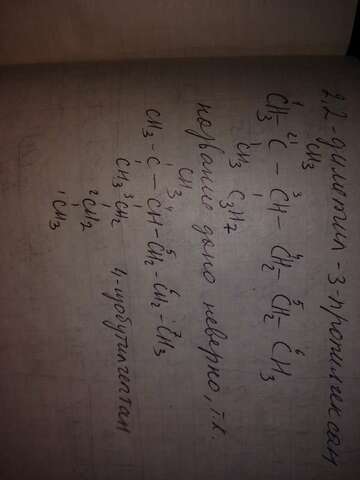 2,2-диметил-3-пропилгексан
CH₃
¹CH₃ - ²C - ³CH - ⁴CH₂ - ⁵CH₂ - ⁶CH₃
CH₃ C₃H₇
название дано неверно, т.к.
CH₃
CH₃ - C - ⁴CH - ⁵CH₂ - ⁶CH₂ - ⁷CH₃
CH₃ ³CH₂
²CH₂ 4-изобутилгептан
¹CH₃